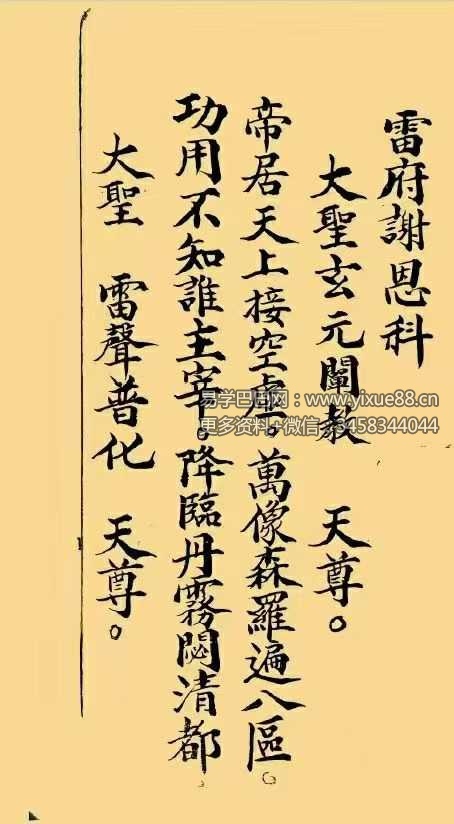 雷府謝恩科
大聖玄元闡教　天尊。
帝居天上接空虛。萬像森羅遍八區。
功用不知誰主宰。降臨丹霧閟清都。
大聖　雷聲普化　天尊。
易学巴巴网：www.yixue88.cn
更多资料+微信：3458344044